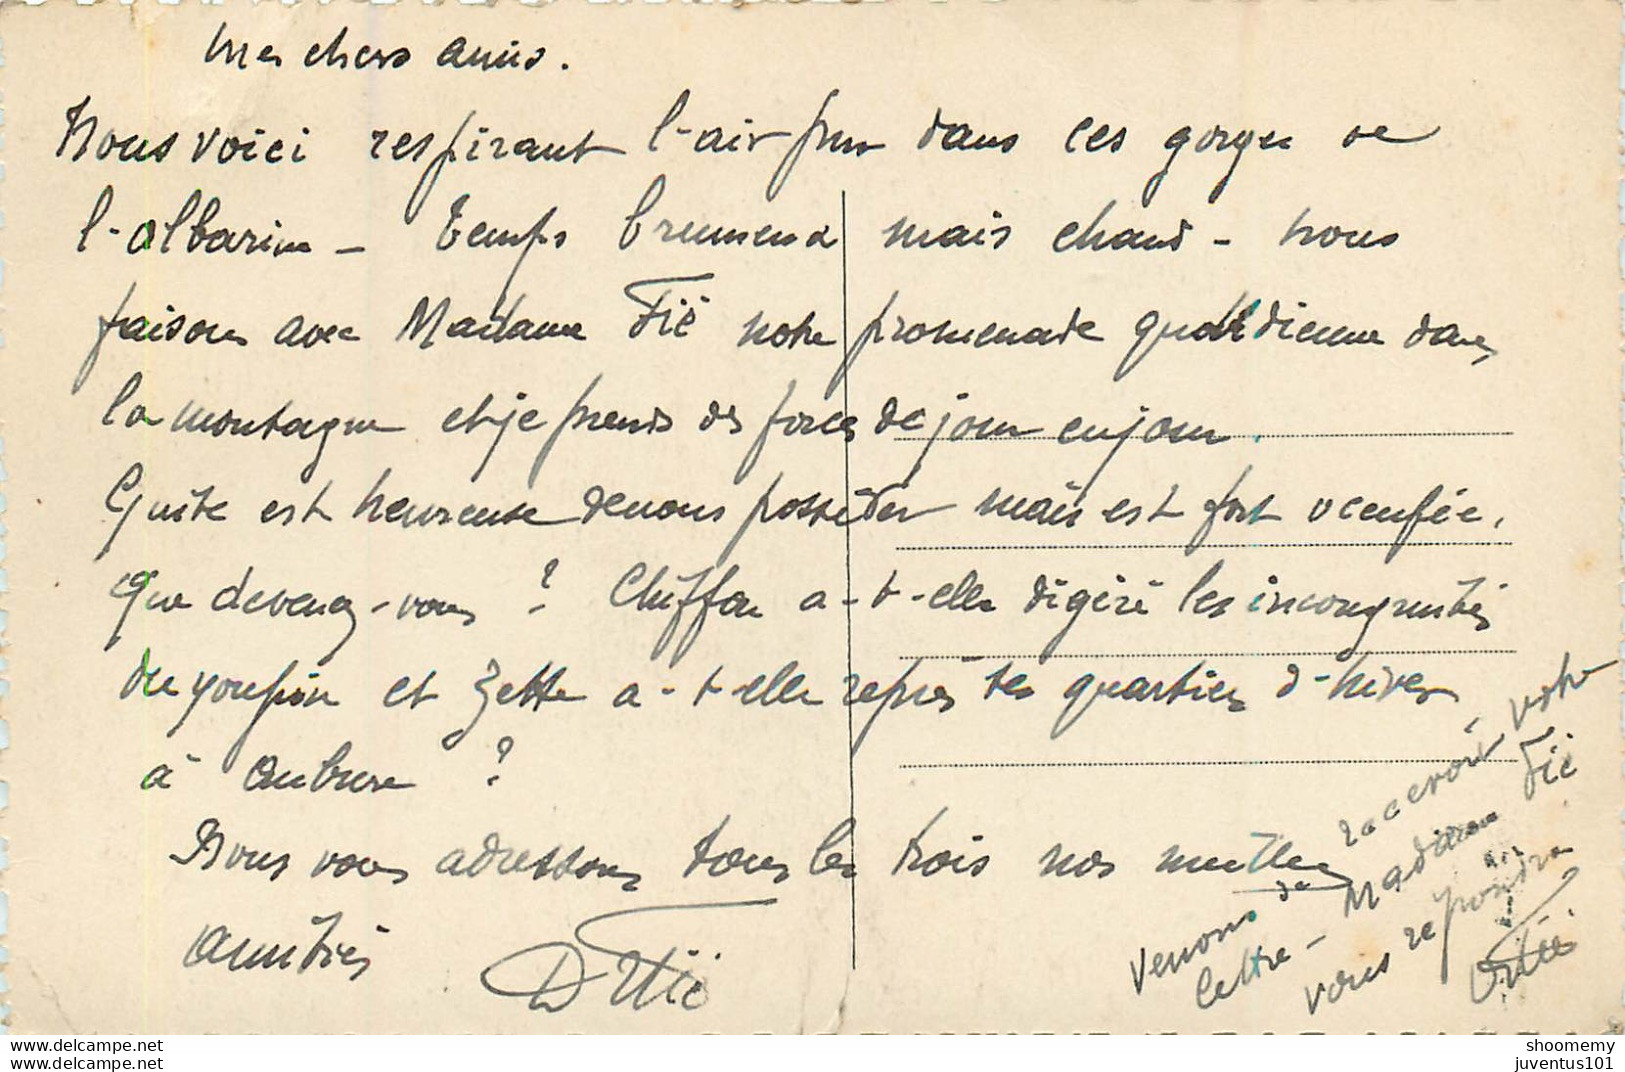 Mes chers amis.
Nous voici respirant l-air pur dans ces gorges de
l-albarine - Temps brumeux mais chaud - nous
faisons avec Madame Tïé notre promenade quotidienne dans
la montagne et je prends des forces de jour en jour.
Guite est heureuse de nous posséder mais est fort occupée.
Que devenez-vous ? Chiffon a-t-elle digéré les incongruités
du youpin et Zette a-t-elle repris tes quartiers d-hiver
à Aubure ?
Nous vous adressons tous les trois nos meilleures
amitiés
Venons de recevoir votre
lettre - Madame Tïé
vous répondra
www.delcampe.net
www.delcampe.net
shoomemy
juventus101